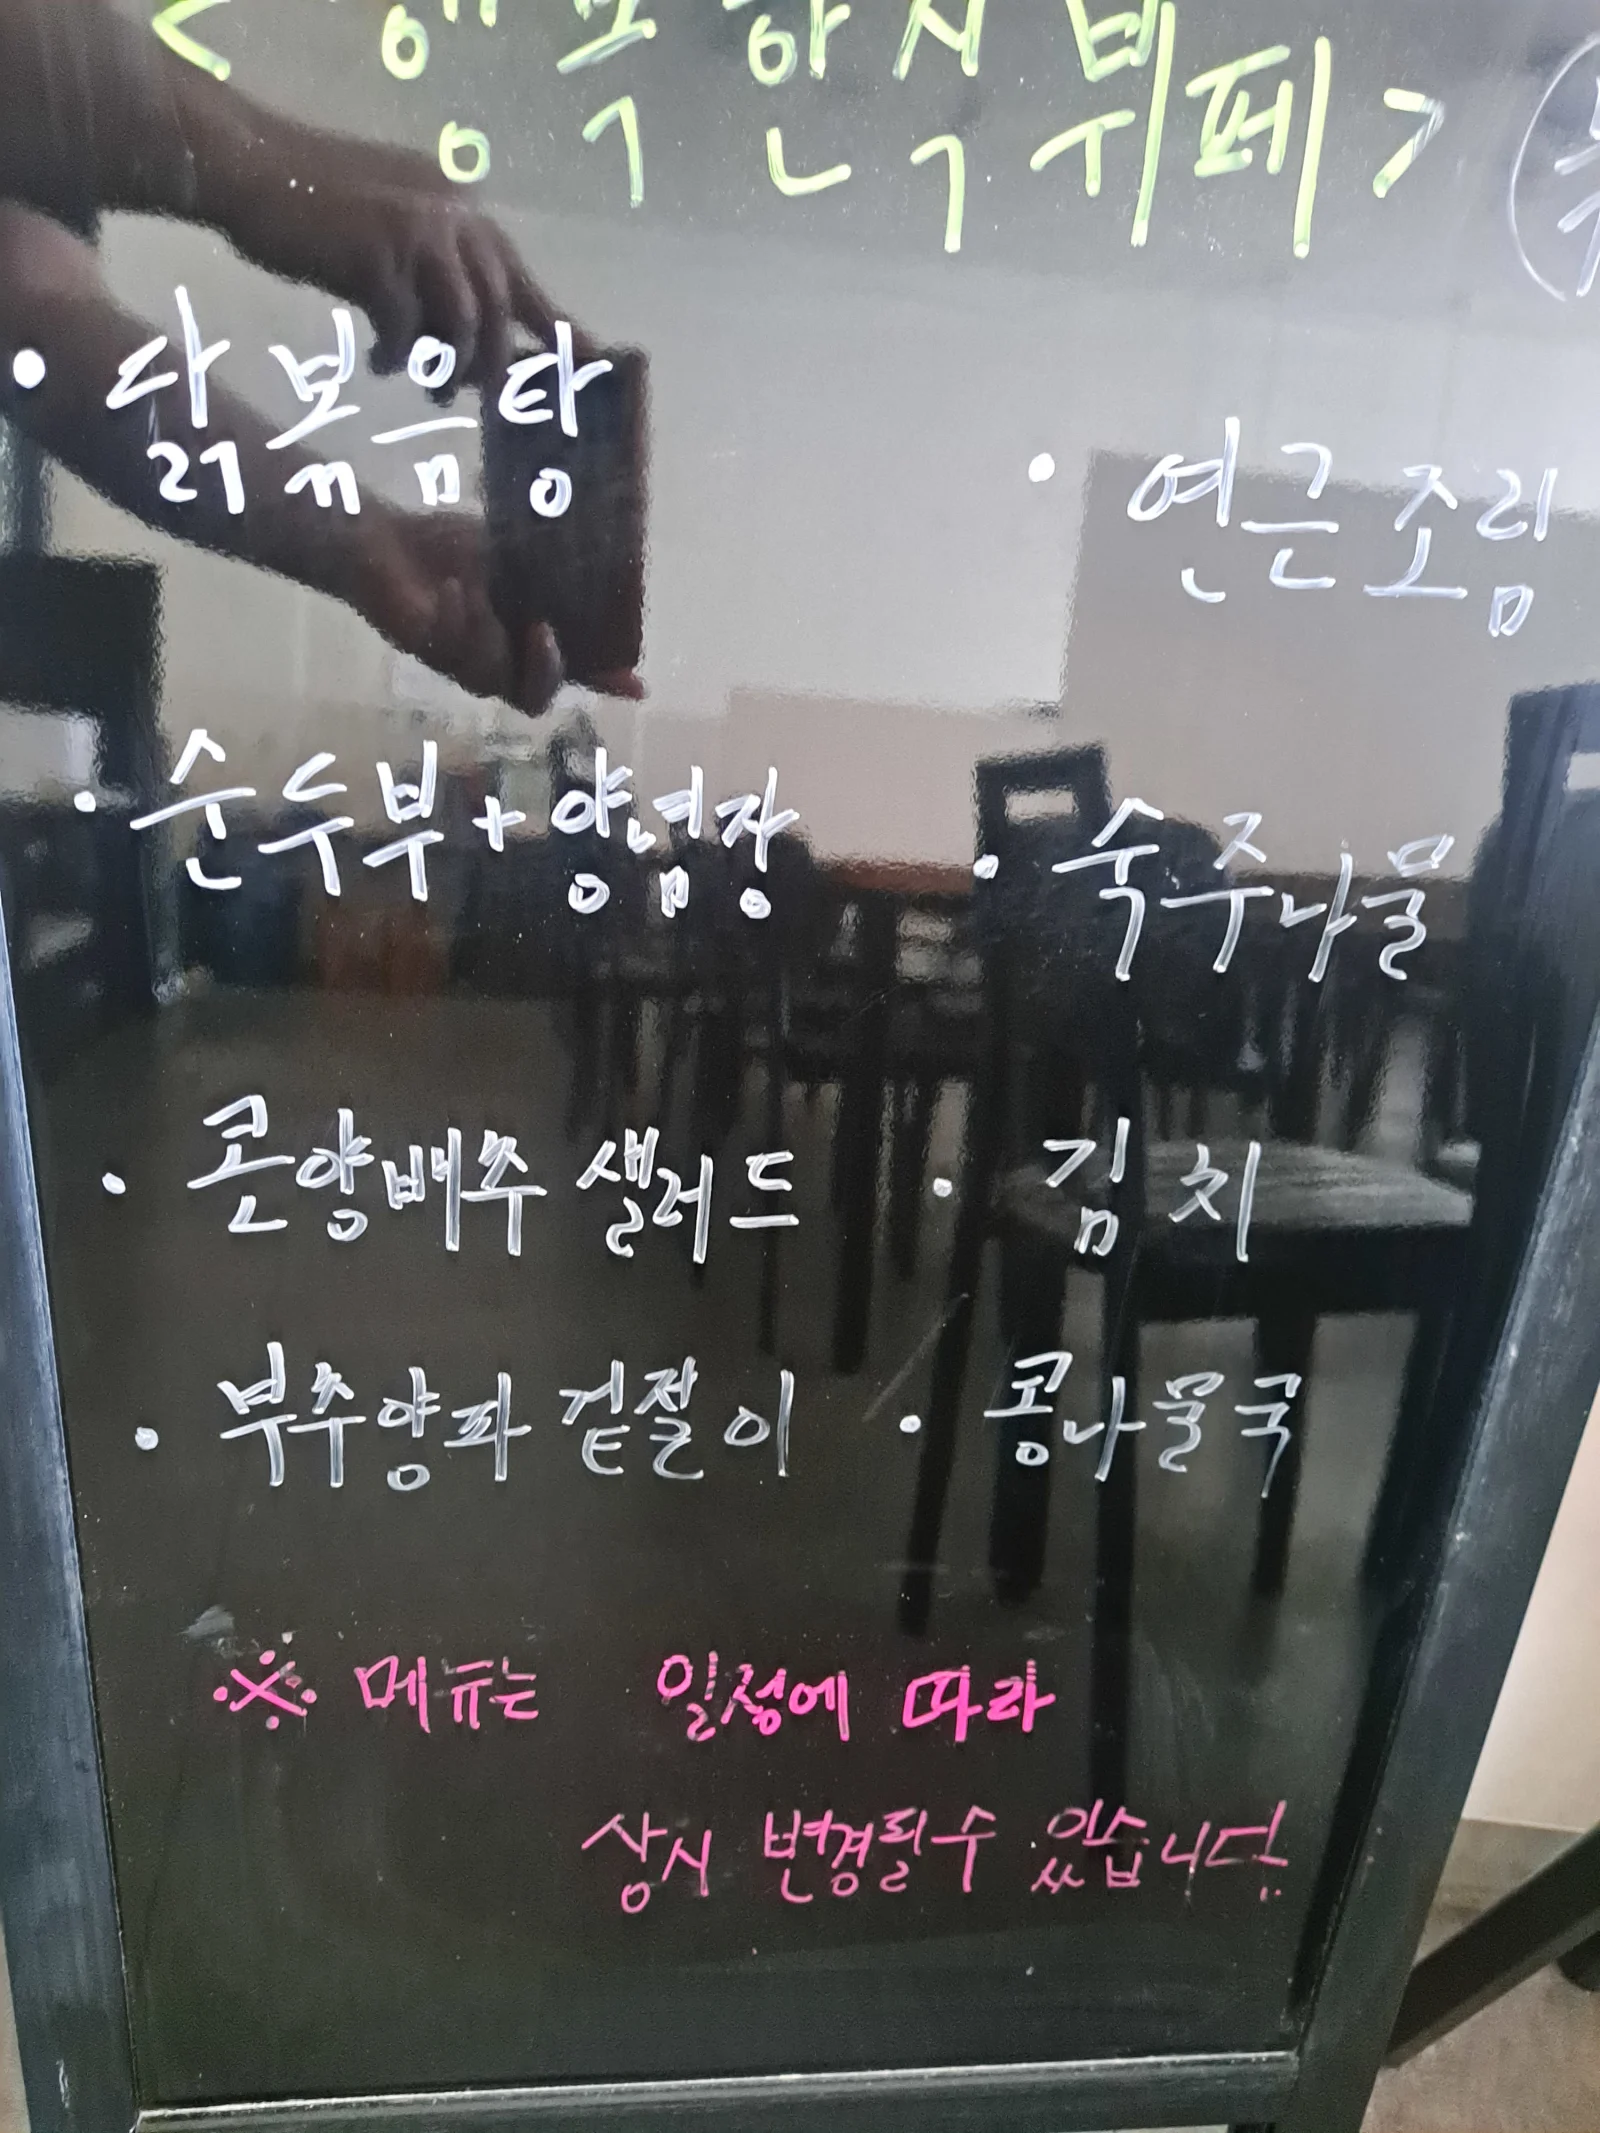 <행복한식뷔페>
• 닭볶음탕
• 연근조림
• 순두부+양념장
• 숙주나물
• 콘양배추 샐러드
• 김치
• 부추양파 겉절이
• 콩나물국
※ 메뉴는 일정에 따라
상시 변경될수 있습니다.